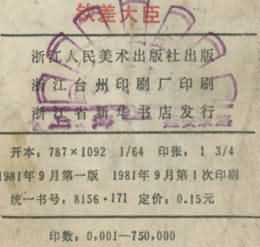 钦差大臣
浙江人民美术出版社出版
浙江台州印刷厂印刷
浙江省新华书店发行
开本:787×1092 1/64 印张:1 3/4
1981年9月第一版 1981年9月第1次印刷
统一书号:8156·171 定价:0.15元
印数:0,001—750,000